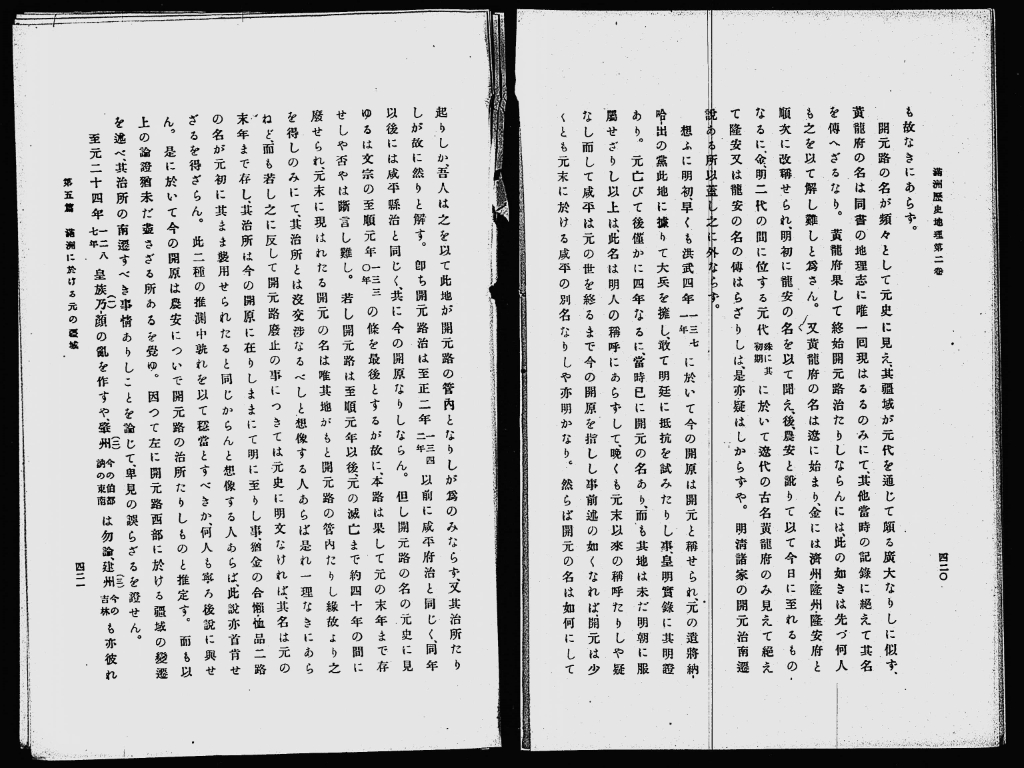 滿洲歷史地理第二卷
四二〇
も故なきにあらず。
開元路の名が頻々として元史に見え、其疆域が元代を通じて頗る廣大なりしに似ず、
黃龍府の名は同書の地理志に唯一囘現はるるのみにて、其他當時の記錄に絕えて其名
を傳へざるなり。黃龍府果して終始開元路治たりしならんには、此の如きは先づ何人
も之を以て解し難しと爲さん。又黃龍府の名は遼に始まり、金には濟州、隆州、隆安府と
順次に改稱せられ、明初に龍安の名を以て聞え、後農安と訛りて以て今日に至れるもの
なるに、金、明二代の間に位する元代殊に其初期に於いて遼代の古名黃龍府のみ見えて絕え
て隆安又は龍安の名の傳はらざりしは、是亦疑はしからずや。明淸諸家の開元治南遷
說ある所以蓋し之に外ならず。
想ふに明初早くも洪武四年一三七一年に於いて今の開原は開元と稱せられ、元の遺將納
哈出の黨此地に據りて大兵を擁し、敢て明廷に抵抗を試みたりし事、皇明實錄に其明證
あり。元亡びて後僅かに四年なるに、當時已に開元の名あり、而も其地は未だ明朝に服
屬せざりし以上は、此名は明人の稱呼にあらずして、晚くも元末以來の稱呼たりしや疑
なし而して咸平は元の世を終るまで今の開原を指しし事前述の如くなれば開元は少
くとも元末に於ける咸平の別名なりしや亦明かなり。然らば開元の名は如何にして
起りしか、吾人は之を以て此地が開元路の管內となりしが爲のみならず、又其治所たり
しが故に然りと解す。卽ち開元路治は至正二年一三四二年以前に咸平府治と同じく、同年
以後には咸平縣治と同じく共に今の開原なりしならん。但し開元路の名の元史に見
ゆるは文宗の至順元年一三三〇年の條を最後とするが故に、本路は果して元の末年まで存
せしや否やは斷言し難し。若し開元路は至順元年以後、元の滅亡まで約四十年の間に
廢せられ、元末に現はれたる開元の名は唯其地がもと開元路の管內たりし緣故より之
を得しのみにて、其治所とは沒交涉なるべしと想像する人あらば、是れ一理なきにあら
ねど而も若し之に反して開元路廢止の事につきては元史に明文なければ、其名は元の
末年まで存し、其治所は今の開原に在りしままにて明に至りし事、猶金の合懶、恤品二路
の名が元初に其まま襲用せられたると同じからんと想像する人あらば、此說亦首肯せ
ざるを得ざらん。此二種の推測中孰れを以て穩當とすべきか、何人も寧ろ後說に與せ
ん。是に於いて今の開原は農安についで開元路の治所たりしものと推定す。而も以
上の論證猶未だ盡さざる所あるを覺ゆ。因つて左に開元路西部に於ける疆域の變遷
を述べ、其治所の南遷すべき事情ありしことを論じて、卑見の誤らざるを證せん。
至元二十四年一二八七年皇族乃顏の亂を作すや、肇州(一)今の伯都訥の東南は勿論、建州(二)今の吉林も亦彼れ
第五篇 滿洲に於ける元の疆域
四二一